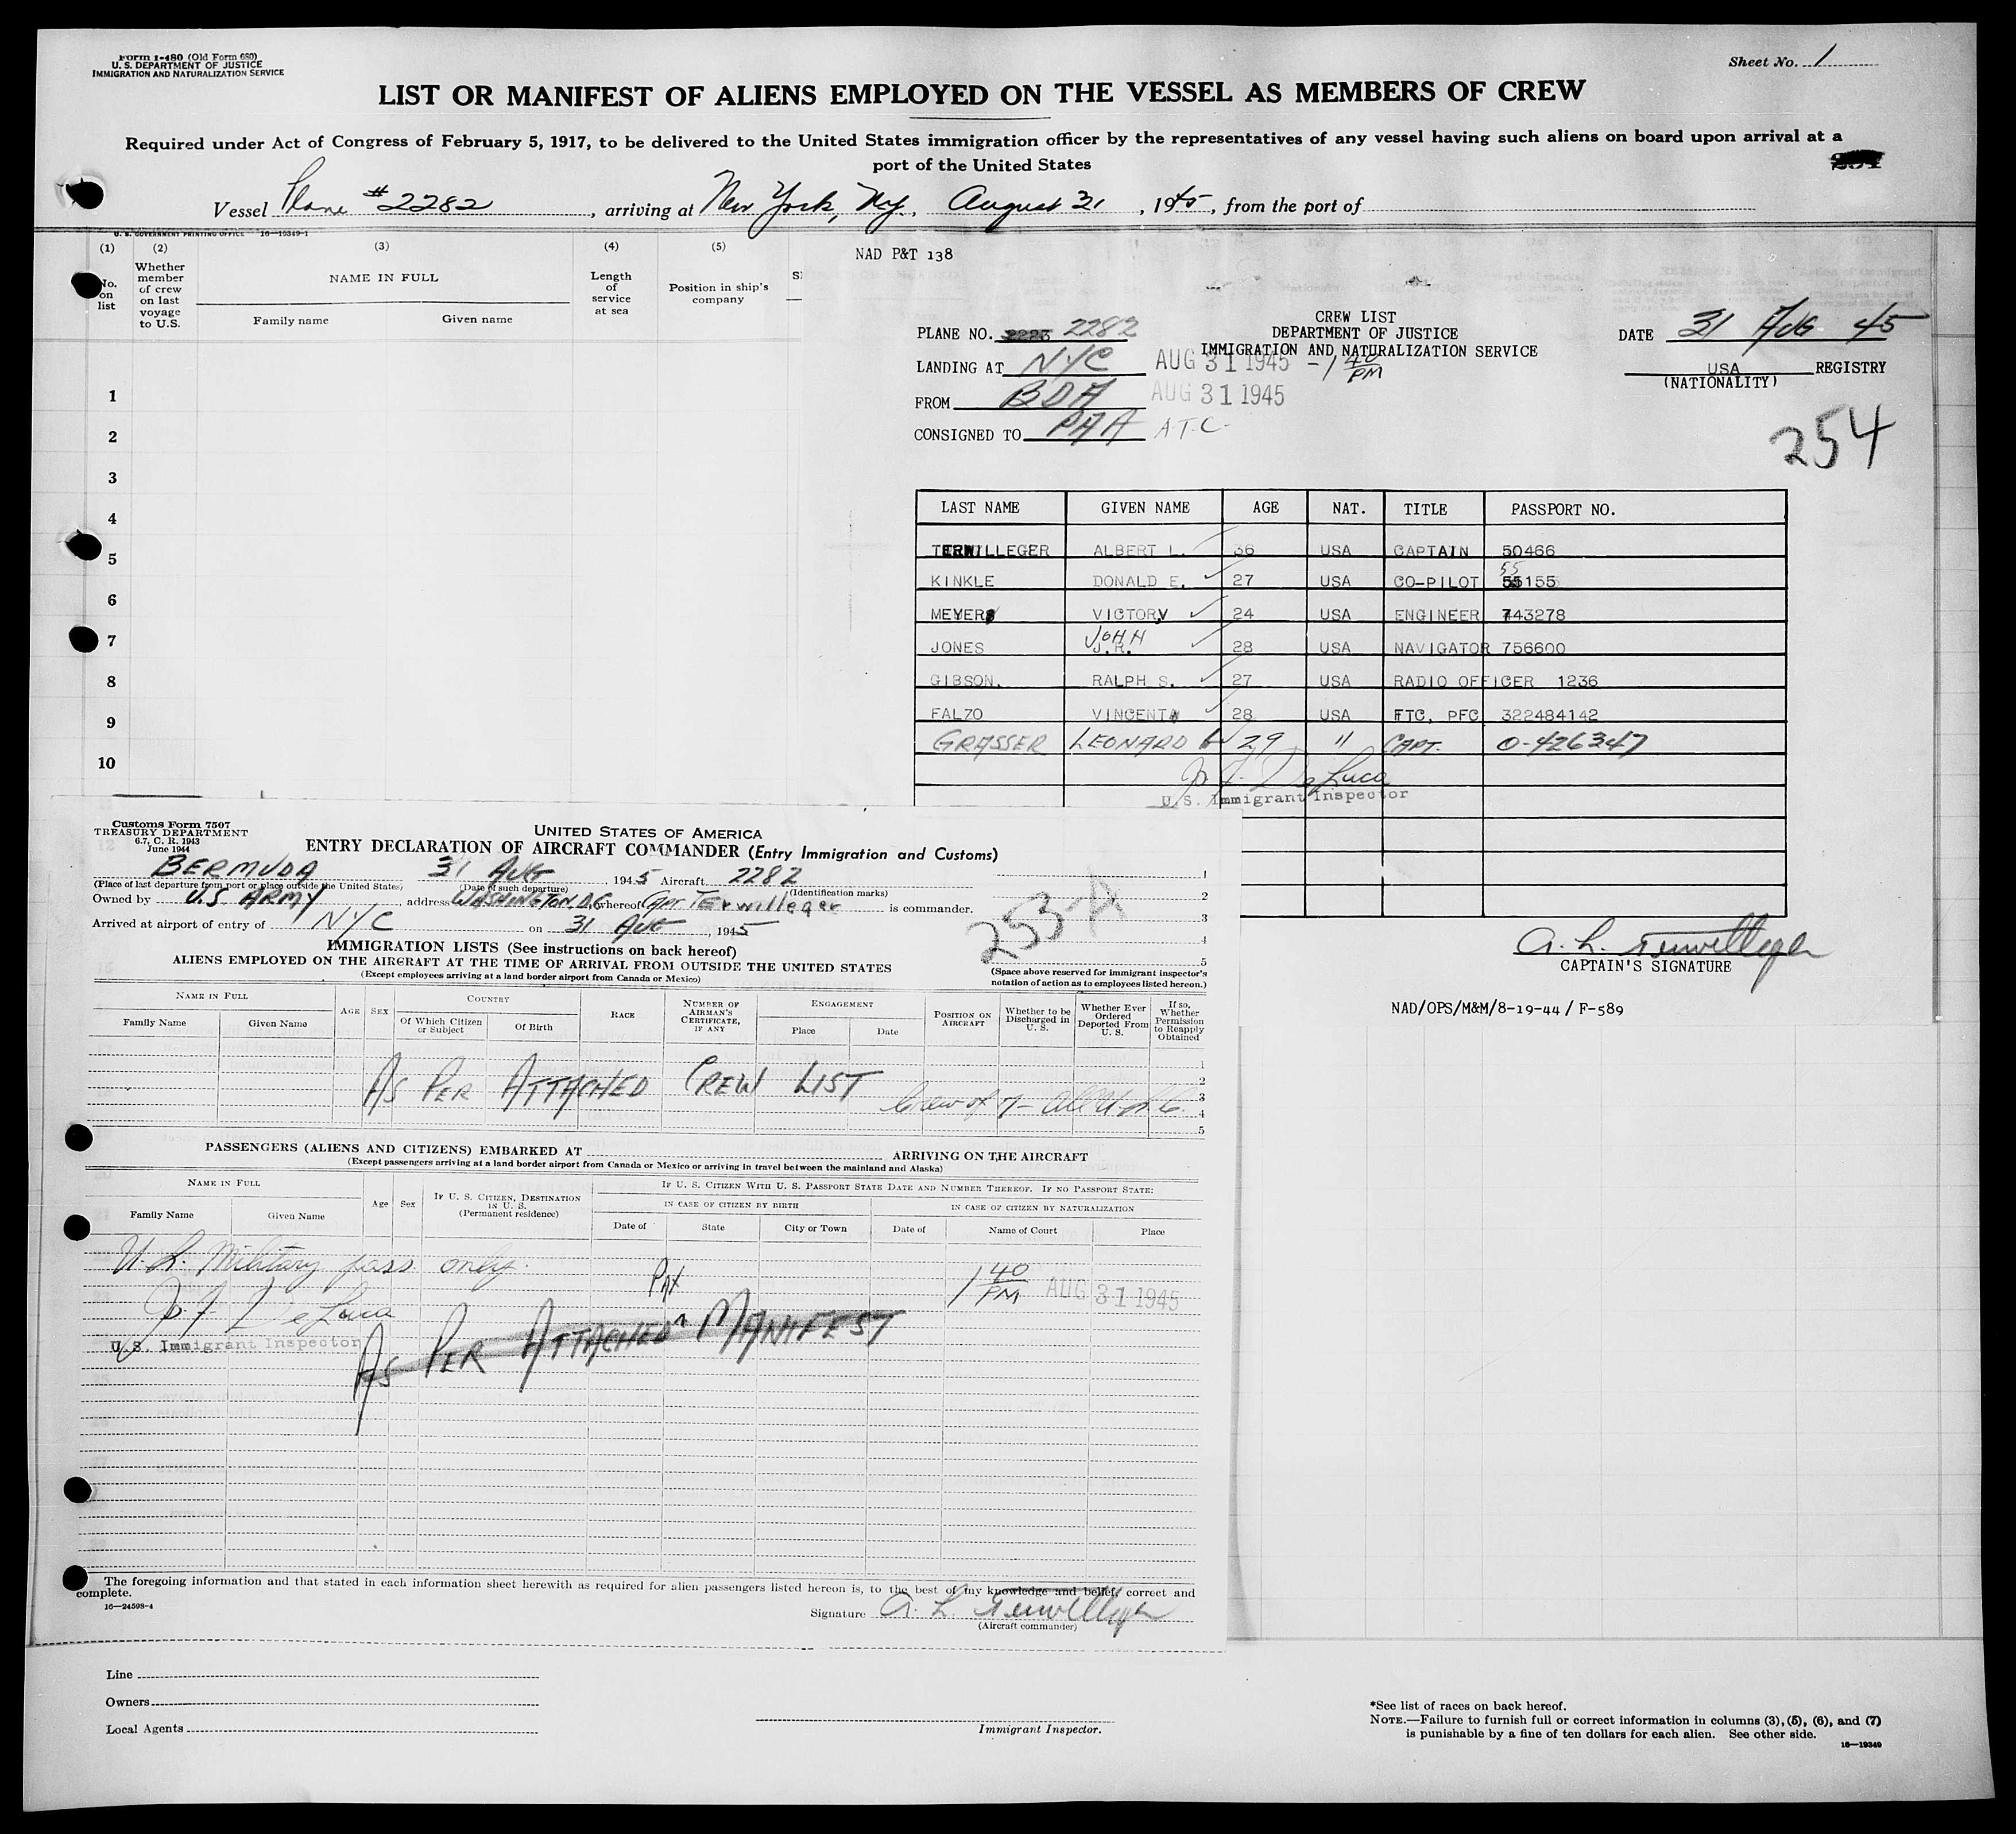 Form I-480 (Old Form 680)
U. S. DEPARTMENT OF JUSTICE
IMMIGRATION AND NATURALIZATION SERVICE
Sheet No. 1
LIST OR MANIFEST OF ALIENS EMPLOYED ON THE VESSEL AS MEMBERS OF CREW
Required under Act of Congress of February 5, 1917, to be delivered to the United States immigration officer by the representatives of any vessel having such aliens on board upon arrival at a
port of the United States
Vessel Plane #2282, arriving at New York, N.Y., August 31, 1945, from the port of
U. S. GOVERNMENT PRINTING OFFICE 16—19349-1
(1) (2) (3) (4) (5)
No. on list
Whether member of crew on last voyage to U.S.
NAME IN FULL
Family name Given name
Length of service at sea
Position in ship's company
1
2
3
4
5
6
7
8
9
10
NAD P&T 138
CREW LIST
DEPARTMENT OF JUSTICE
IMMIGRATION AND NATURALIZATION SERVICE
PLANE NO. 2223 2282
DATE 31 AUG 45
LANDING AT NYC AUG 31 1945 -1 40 PM
USA REGISTRY
(NATIONALITY)
FROM BDA AUG 31 1945
CONSIGNED TO PAA A.T.C.
254
LAST NAME GIVEN NAME AGE NAT. TITLE PASSPORT NO.
TERWILLEGER ALBERT L. 36 USA CAPTAIN 50466
KINKLE DONALD E. 27 USA CO-PILOT 55155
MEYER VICTOR 24 USA ENGINEER 743278
JONES JOHN J.R. 28 USA NAVIGATOR 756600
GIBSON. RALPH S. 27 USA RADIO OFFICER 1236
FALZO VINCENT 28 USA FTC, PFC 322484142
GRASSER LEONARD 29 " CAPT. O-426347
Jo. F. DeLuca
U.S. Immigrant Inspector
A. L. Terwilleger
CAPTAIN'S SIGNATURE
NAD/OPS/M&M/8-19-44 / F-589
Customs Form 7507
TREASURY DEPARTMENT
6.7, C. R. 1943
June 1944
UNITED STATES OF AMERICA
ENTRY DECLARATION OF AIRCRAFT COMMANDER (Entry Immigration and Customs)
BERMUDA 31 AUG, 1945 Aircraft 2282
(Place of last departure from port or place outside the United States) (Date of such departure) (Identification marks)
Owned by U.S. ARMY, address WASHINGTON, D.C. whereof CAPT TErwilleger is commander.
Arrived at airport of entry of NYC on 31 AUG, 1945
253-A
1
2
3
4
5
IMMIGRATION LISTS (See instructions on back hereof)
ALIENS EMPLOYED ON THE AIRCRAFT AT THE TIME OF ARRIVAL FROM OUTSIDE THE UNITED STATES
(Except employees arriving at a land border airport from Canada or Mexico)
(Space above reserved for immigrant inspector's
notation of action as to employees listed hereon.)
NAME IN FULL
Family Name Given Name
AGE SEX
COUNTRY
Of Which Citizen or Subject Of Birth
RACE
NUMBER OF AIRMAN'S CERTIFICATE, IF ANY
ENGAGEMENT
Place Date
POSITION ON AIRCRAFT
Whether to be Discharged in U. S.
Whether Ever Ordered Deported From U. S.
If so, Whether Permission to Reapply Obtained
1
2
3
4
5
AS PER ATTACHED CREW LIST
Crew of 7 - all U.S.C.
PASSENGERS (ALIENS AND CITIZENS) EMBARKED AT ARRIVING ON THE AIRCRAFT
(Except passengers arriving at a land border airport from Canada or Mexico or arriving in travel between the mainland and Alaska)
NAME IN FULL
Family Name Given Name
Age Sex
IF U. S. CITIZEN, DESTINATION IN U. S. (Permanent residence)
IF U. S. CITIZEN WITH U. S. PASSPORT STATE DATE AND NUMBER THEREOF. IF NO PASSPORT STATE:
IN CASE OF CITIZEN BY BIRTH IN CASE OF CITIZEN BY NATURALIZATION
Date of State City or Town Date of Name of Court Place
U.S. Military pass. only.
PAX
1 40 PM AUG 31 1945
Jo. F. DeLuca
U.S. Immigrant Inspector
AS PER ATTACHED MANIFEST
The foregoing information and that stated in each information sheet herewith as required for alien passengers listed hereon is, to the best of my knowledge and belief, correct and
complete.
16—24598-4
Signature A. L. Terwilleger
(Aircraft commander)
Line
Owners
Local Agents
Immigrant Inspector.
*See list of races on back hereof.
NOTE.—Failure to furnish full or correct information in columns (3), (5), (6), and (7)
is punishable by a fine of ten dollars for each alien. See other side.
16—19349